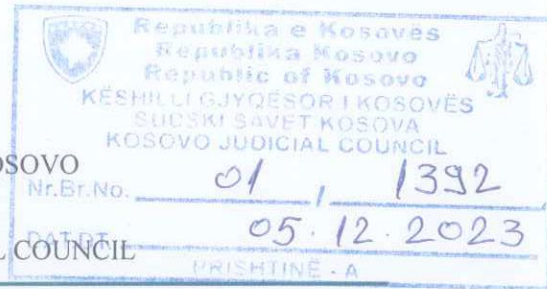 Republika e Kosovës
Republika Kosovo
Republic of Kosovo
KËSHILLI GJYQËSOR I KOSOVËS
SUDSKI SAVET KOSOVA
KOSOVO JUDICIAL COUNCIL
OSOVO
Nr.Br.No. 01 / 1392
DAT.DT. 05.12.2023
L COUNCIL
PRISHTINË - A